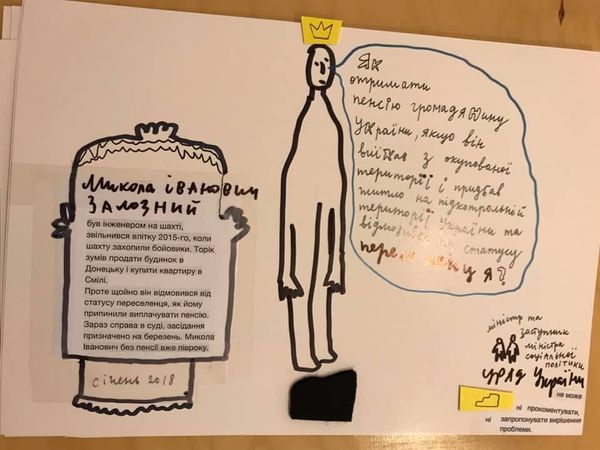 Микола Іванович
ЗАЛОЗНИЙ
був інженером на шахті,
звільнився влітку 2015-го, коли
шахту захопили бойовики. Торік
зумів продати будинок в
Донецьку і купити квартиру в
Смілі.
Проте щойно він відмовився від
статусу переселенця, як йому
припинили виплачувати пенсію.
Зараз справа в суді, засідання
призначено на березень. Микола
Іванович без пенсії вже півроку.
січень 2018
Як
отримати
пенсію громадянину
України, якщо він
виїхав з окупованої
території і придбав
житло на підконтрольній
території України та
відмовився статусу
?
міністр та
заступник
міністра
соціальної
політики
уряд України
не може
ні прокоментувати,
ні запропонувати вирішення
проблеми.